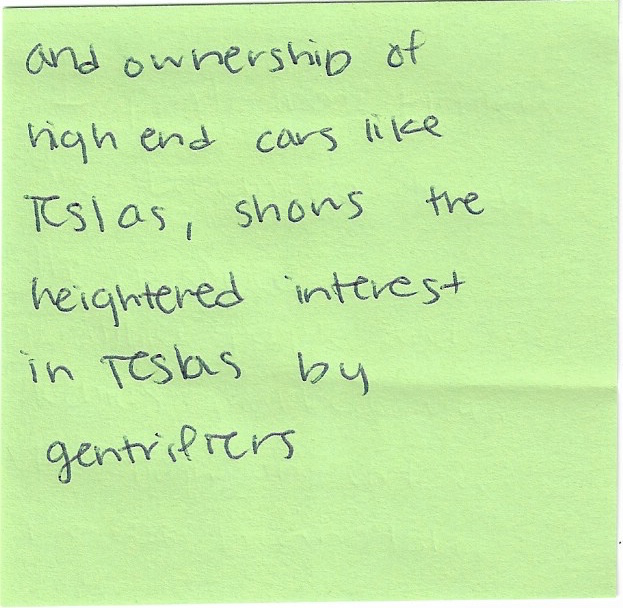 and ownership of
high end cars like
Teslas, shows the
heightered interest
in Teslas by
gentrifiers